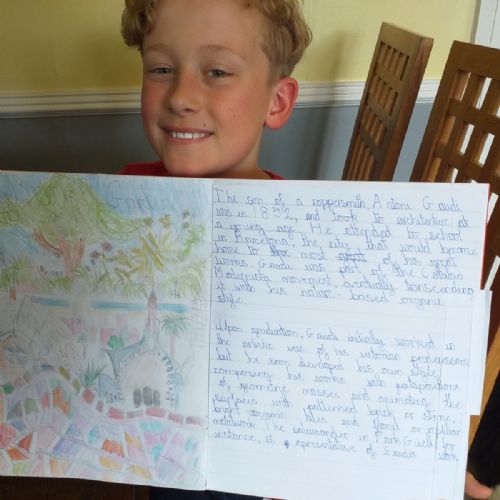 The son of a coppersmith, Antoni Gaudi
was in 1852, and took to architecture at
a young age. He attended to school
in Barcelona, the city that would become
home to most of his great
works. Gaudi was part of the Catalan
Modernista movement, eventually transcending
it with his nature-based organic
style.
Upon graduation, Gaudi initially worked in
the artistic vein of his victorian predecessors
but he soon developed his own style,
composing his works with juxtapositions
of geometric masses and animating the
surfaces with patterned brick or stone,
bright tiles and floral or reptilian
metalwork. The salamander in Park Güell, for
instance, is representative of Gaudis work